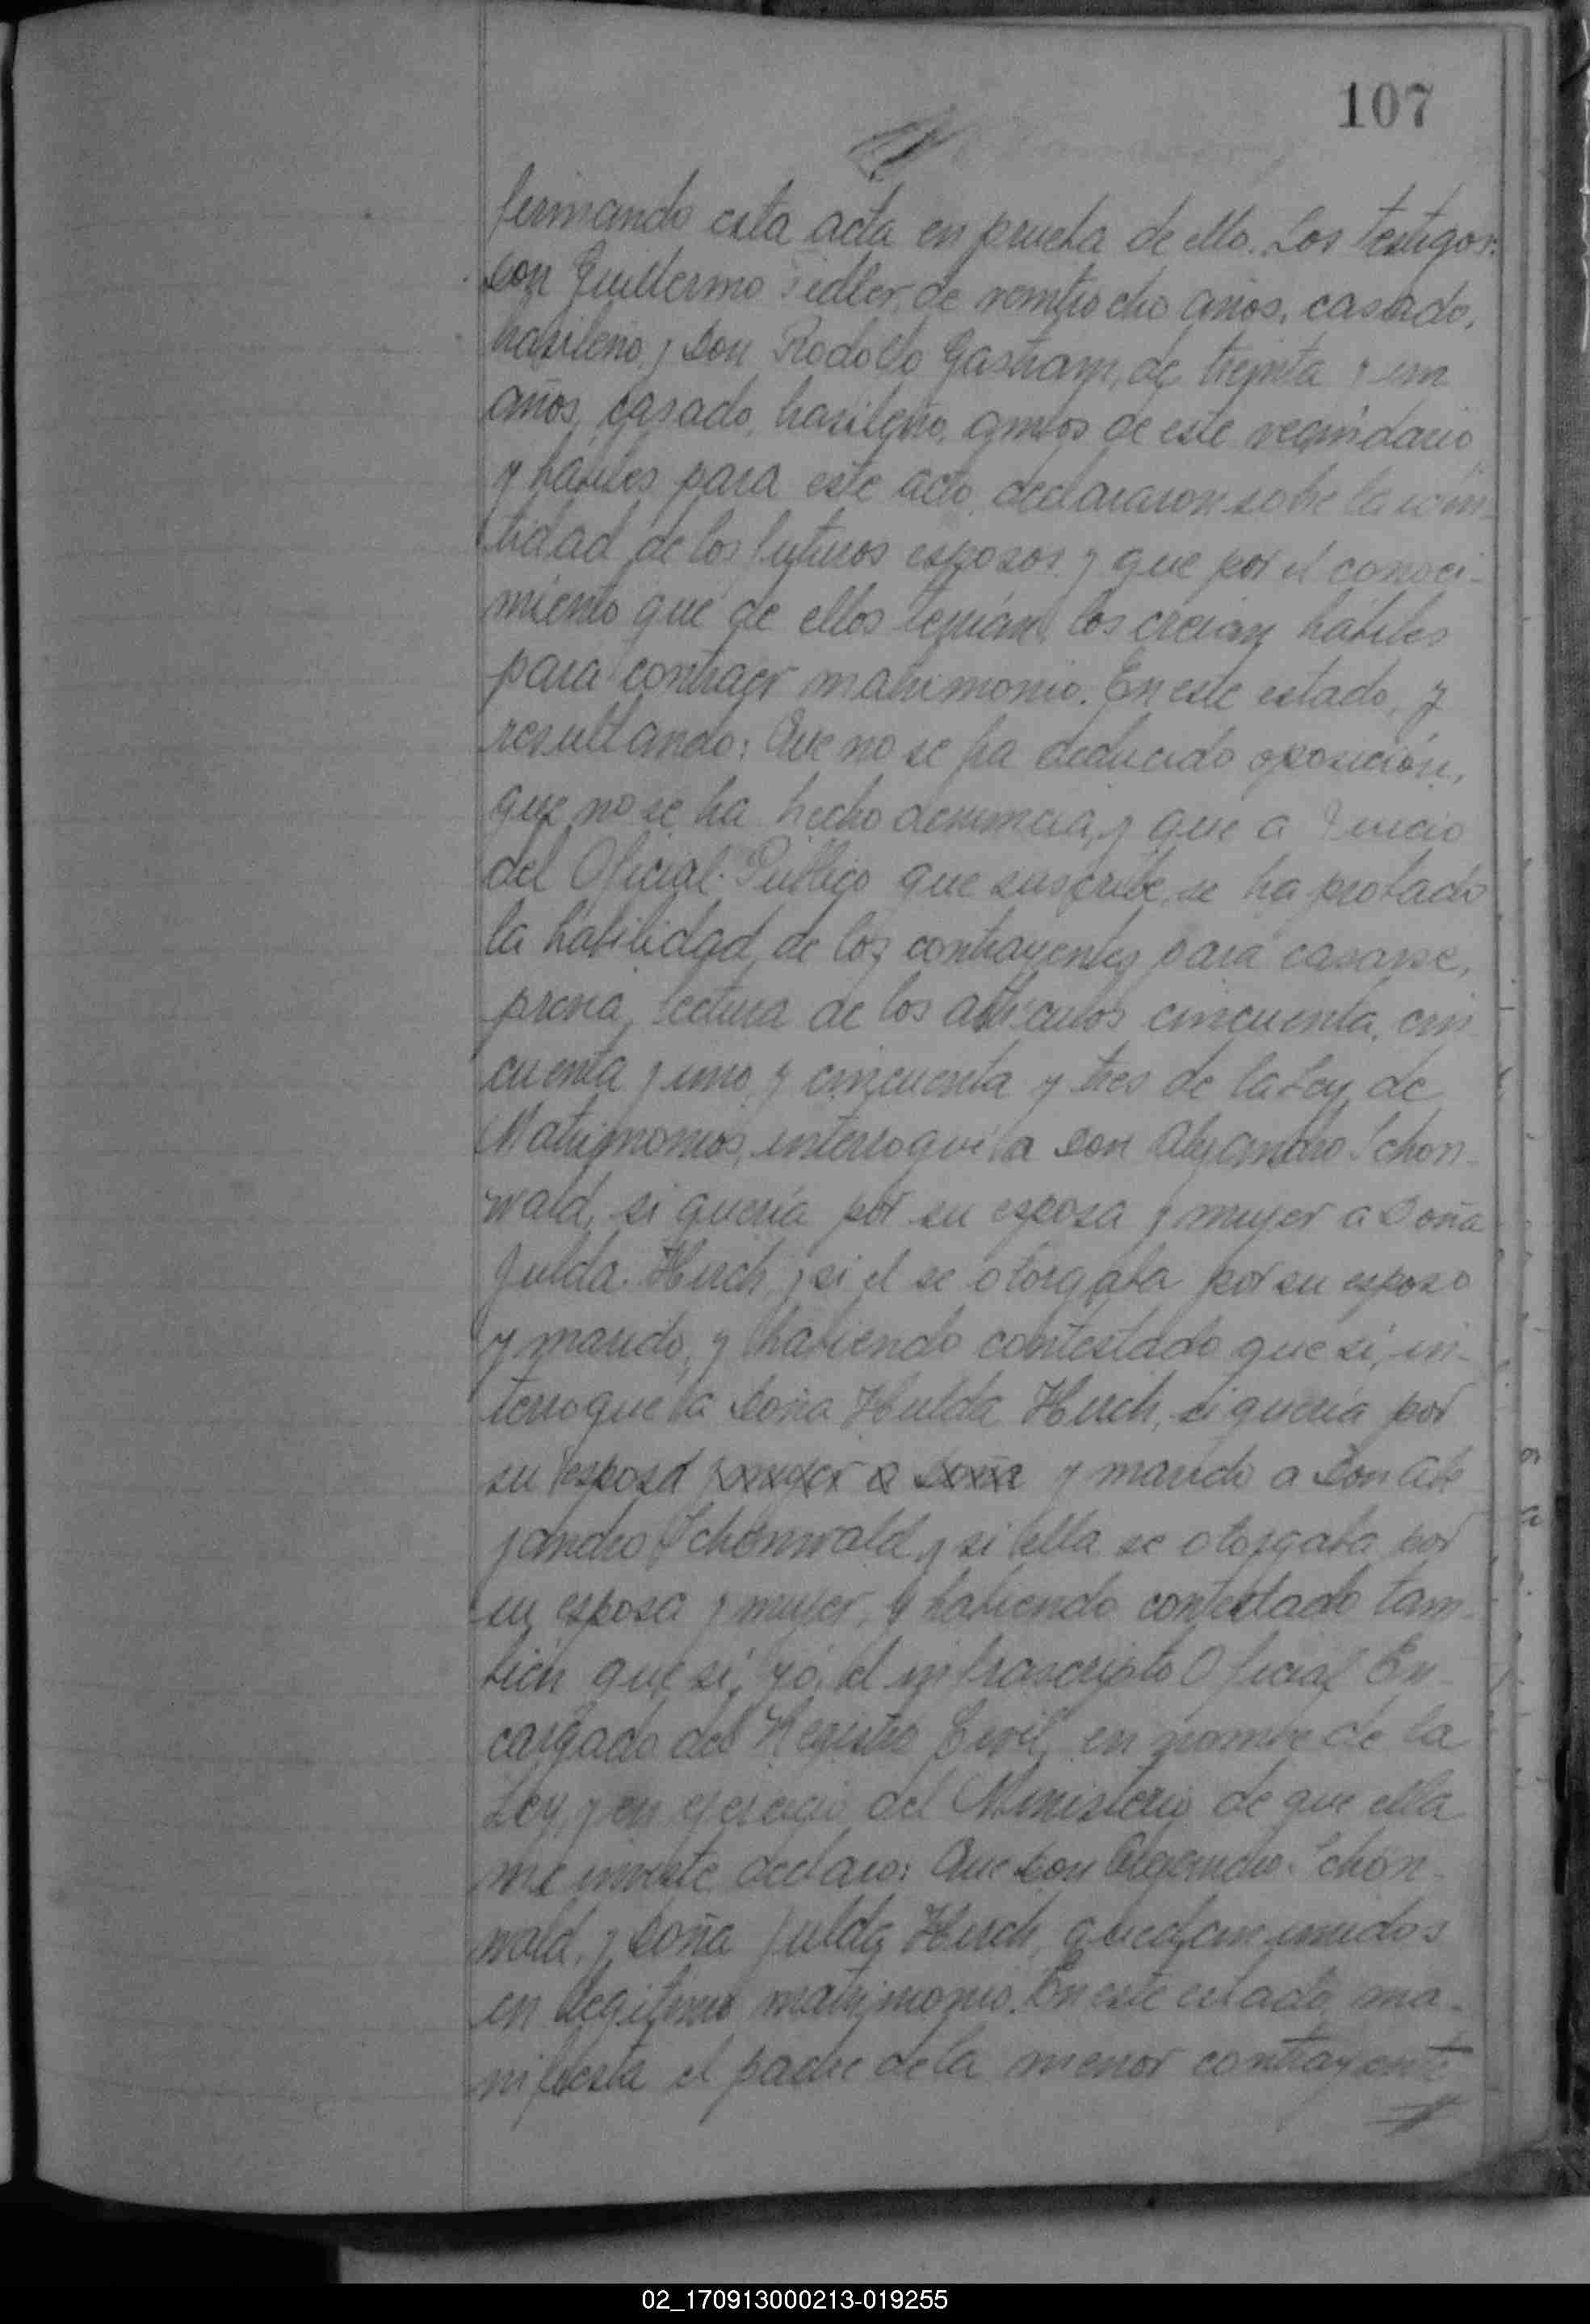 107
firmando esta acta en prueba de ello. Los testigos:
don Guillermo Sidler, de veintiocho años, casado,
brasileño y don Rodolfo de treinta y un
años, casado, brasileño, ambos de este vecindario
y hábiles para este acto, declararon sobre la iden-
tidad de los futuros esposos y que por el conoci-
miento que de ellos tenían, los creían hábiles
para contraer matrimonio. En este estado, y
resultando: Que no se ha deducido oposición,
que no se ha hecho denuncia, y que a juicio
del Oficial Público que suscribe, se ha probado
la habilidad de los contrayentes para casarse,
previa lectura de los artículos cincuenta, cin-
cuenta y uno y cincuenta y tres de la Ley de
Matrimonios, interrogué a don Alejandro Schon-
wald, si quería por su esposa y mujer a Doña
Julda Hirch y si el se otorgaba por su esposo
y marido, y habiendo contestado que si, in-
terrogué a doña Hulda Hirch, si quería por
su esposa y mujer a doña y marido a don Ale
jandro Schonwald y si ella se otorgaba por
su esposa y mujer, y habiendo contestado tam-
bién que si, yo, el infrascripto Oficial En-
cargado del Registro Civil, en nombre de la
Ley, y en ejercicio del Ministerio de que ella
me inviste declaro: Que don Alejandro Schön-
wald, y doña Julda Hirch, quedan unidos
en legítimo matrimonio. En este estado ma-
nifiesta el padre de la menor contrayente
02_170913000213-019255